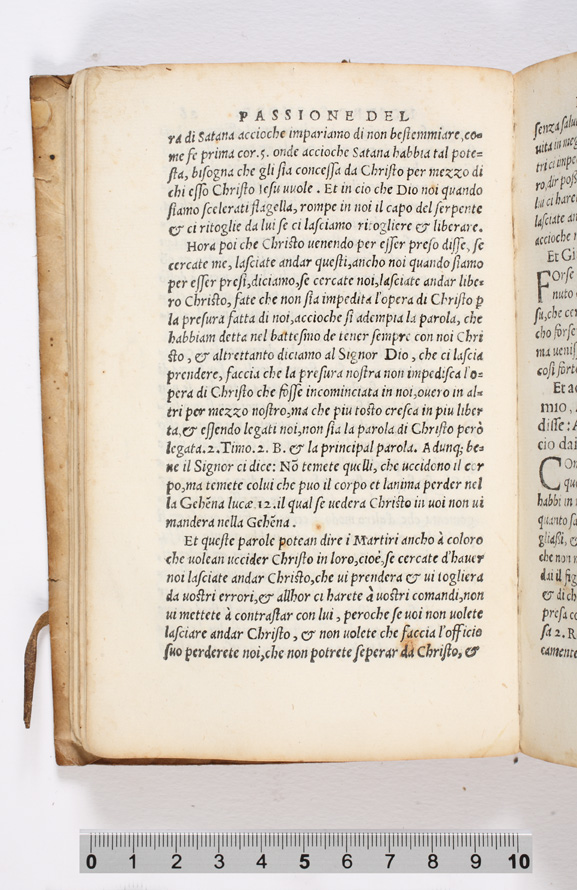 PASSIONE DEL
ra di Satana accioche impariamo di non bestemmiare, co=
me fe prima cor. 5. onde accioche Satana habbia tal pote=
sta, bisogna che gli sia concessa da Christo per mezzo di
chi esso Christo Iesu vuole. Et in cio che Dio noi quando
siamo scelerati flagella, rompe in noi il capo del serpente
& ci ritoglie da lui se ci lasciamo ritogliere & liberare.
Hora poi che Christo uenendo per esser preso disse, se
cercate me, lasciate andar questi, ancho noi quando siamo
per esser presi, diciamo, se cercate noi, lasciate andar libe=
ro Christo, fate che non sia impedita l'opera di Christo p
la presura fatta di noi, accioche si adempia la parola, che
habbiam detta nel battesmo de tener sempre con noi Chri
sto, & altrettanto diciamo al Signor Dio, che ci lascia
prendere, faccia che la presura nostra non impedisca l'o=
pera di Christo che fosse incominciata in noi, ouero in al=
tri per mezzo nostro, ma che piu tosto cresca in piu liber
ta, & essendo legati noi, non sia la parola di Christo però
legata. 2. Timo. 2. B. & la principal parola. Adunq; be=
ne il Signor ci dice: Nō temete quelli, che uccidono il cor
po, ma temete colui che puo il corpo et lanima perder nel
la Gehēna lucæ. 12. il qual se uedera Christo in uoi non ui
mandera nella Gehēna.
Et queste parole potean dire i Martiri ancho à coloro
che uolean uccider Christo in loro, cioè, se cercate d'hauer
noi lasciate andar Christo, che ui prendera & ui togliera
da vostri errori, & allhor ci harete à vostri comandi, non
ui mettete à contrastar con lui, peroche se uoi non uolete
lasciare andar Christo, & non uolete che faccia l'officio
suo perderete noi, che non potrete seperar da Christo, &
senza salu
uita in
tri ci impe
ro, dir poss
lui ci harei
lasciate an
accioche n
Et Gi
Forse
nuto
su, che cer
cho forse
ma ueniss
così forte
Et ac
mio,
disse: A
cio dai
Con
que
habbi in
quanto sa
gliassi, e
che non n
dai il fig
& di ch
presa co
sa 2. R
camente
0 1 2 3 4 5 6 7 8 9 10